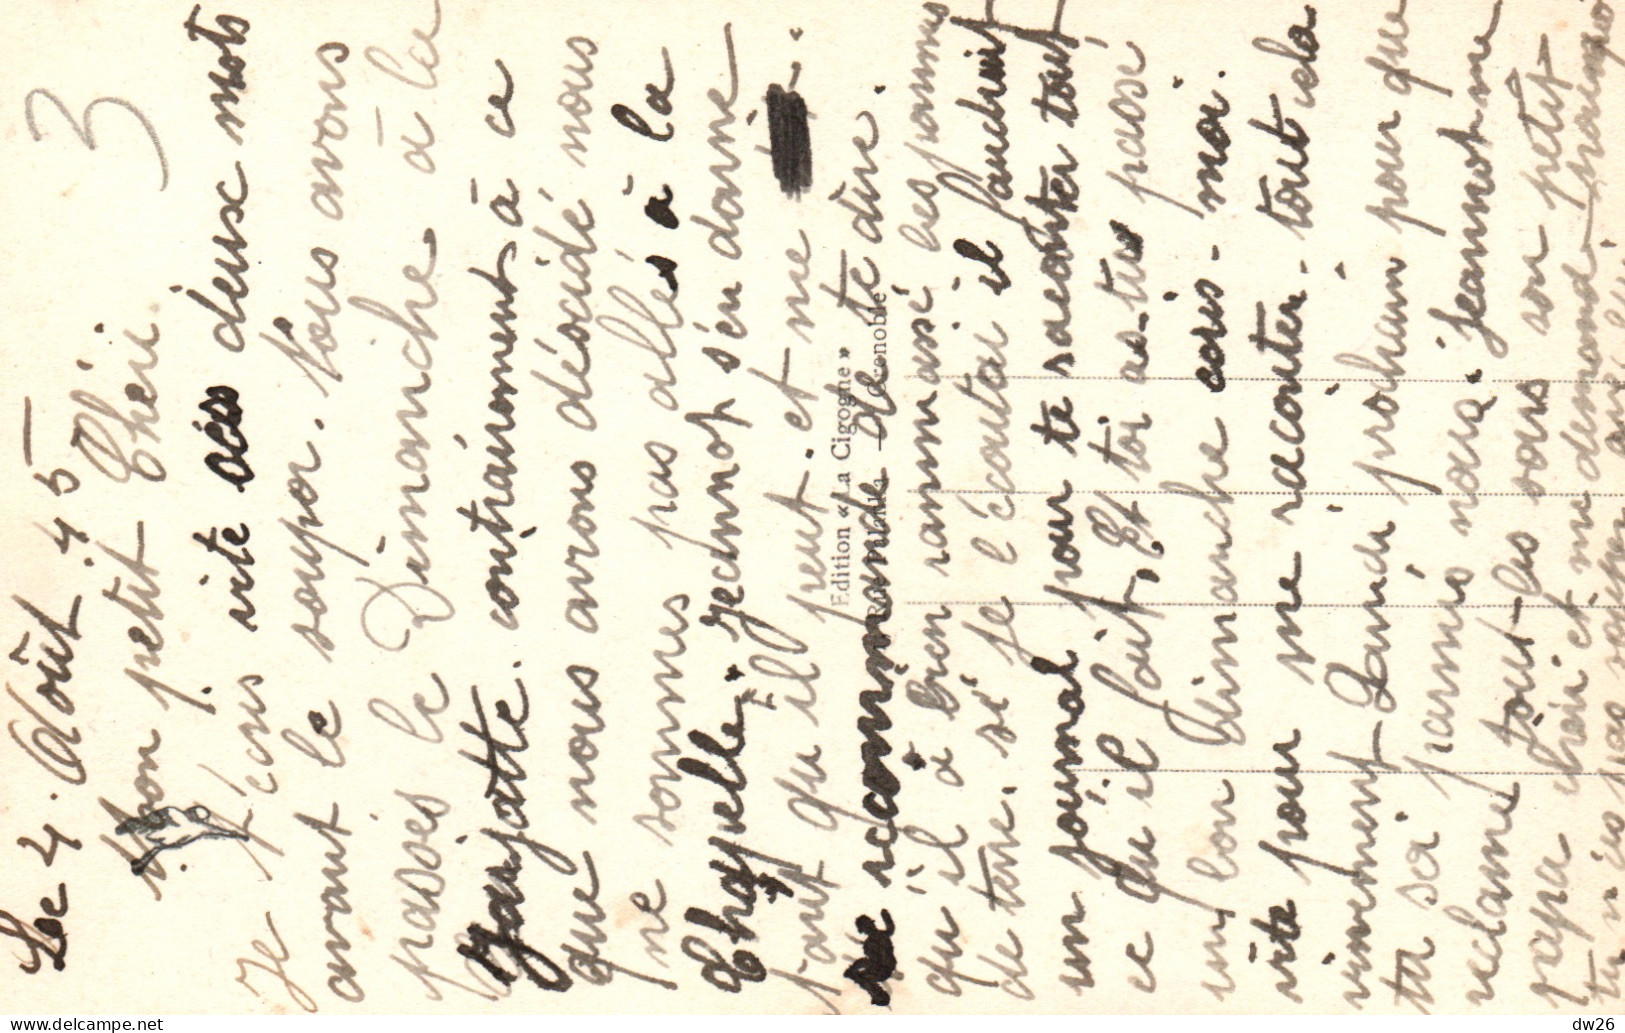 3
Le 4. Août 45
Mon petit Chéri.
Je t'écris vite ces deux mots
avant le souper. Nous avons
passés le Dimanche à la
Bajatte. contrairement à ce
que nous avons désocidé nous
ne sommes pas allés à la
Chapelle. Jeannot s'en donne
tant qu'il peut. et ne
recommande de te dire.
qu'il à bien rammasé les pommes
de terre. si je l'écoutai il faudrait
un journal pour te raconter tout
ce qu'il fait. Et toi as-tu passé
un bon Dimanche ecris-moi.
vite pour me raconter. tout cela
vivement Lundi prochain pour que
ta sei parmis nous. Jeannot me
reclame tout-les sours son petit
papa chéri et me demande pourquoi
tu n'es pas
Edition « La Cigogne »
Grenoble
dw26